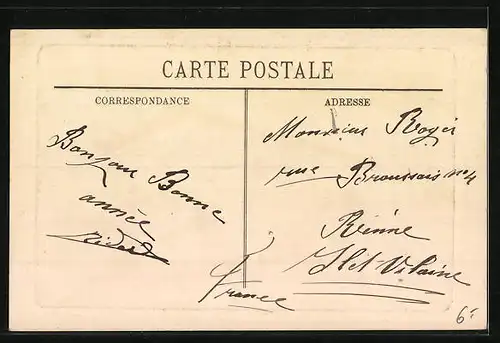 CARTE POSTALE
CORRESPONDANCE
Bonjour Bonne
année
ADRESSE
Monsieur Roger
rue Broussais no 4
Rénne
Ile et-Vilaine
France
6